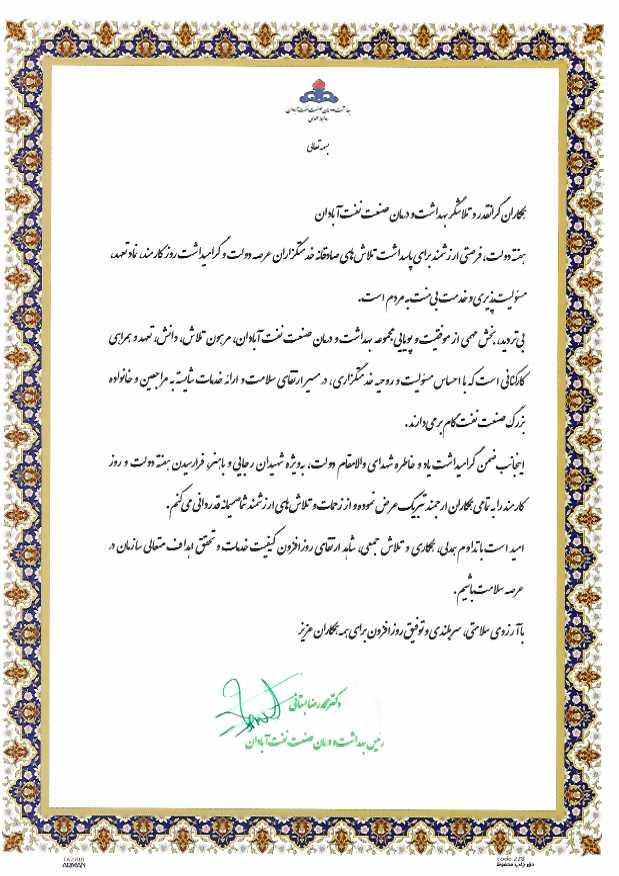 بهداشت و درمان صنعت نفت آبادان
روابط عمومی
بسمه تعالی
همکاران گرانقدر و تلاشگر بهداشت و درمان صنعت نفت آبادان
هفته دولت، فرصتی ارزشمند برای پاسداشت تلاش‌های صادقانه خدمتگزاران عرصه دولت و گرامیداشت روز کارمند، نماد تعهد،
مسئولیت‌پذیری و خدمت بی‌منت به مردم است.
بی‌تردید، بخش مهمی از موفقیت و پویایی مجموعه بهداشت و درمان صنعت نفت آبادان، مرهون تلاش، دانش، تعهد و همراهی
کارکنانی است که با احساس مسئولیت و روحیه خدمتگزاری، در مسیر ارتقای سلامت و ارائه خدمات شایسته به مراجعین و خانواده
بزرگ صنعت نفت گام برمی‌دارند.
اینجانب ضمن گرامیداشت یاد و خاطره شهدای والامقام دولت، به‌ویژه شهیدان رجایی و باهنر، فرارسیدن هفته دولت و روز
کارمند را به تمامی همکاران ارجمند تبریک عرض نموده و از زحمات و تلاش‌های ارزشمند شما صمیمانه قدردانی می‌کنم.
امید است با تداوم همدلی، همکاری و تلاش جمعی، شاهد ارتقای روزافزون کیفیت خدمات و تحقق اهداف متعالی سازمان در
عرصه سلامت باشیم.
با آرزوی سلامتی، سربلندی و توفیق روزافزون برای همه همکاران عزیز
دکتر محمدرضا بستانی
رئیس بهداشت و درمان صنعت نفت آبادان
ARMAN
code:228
حق چاپ محفوظ